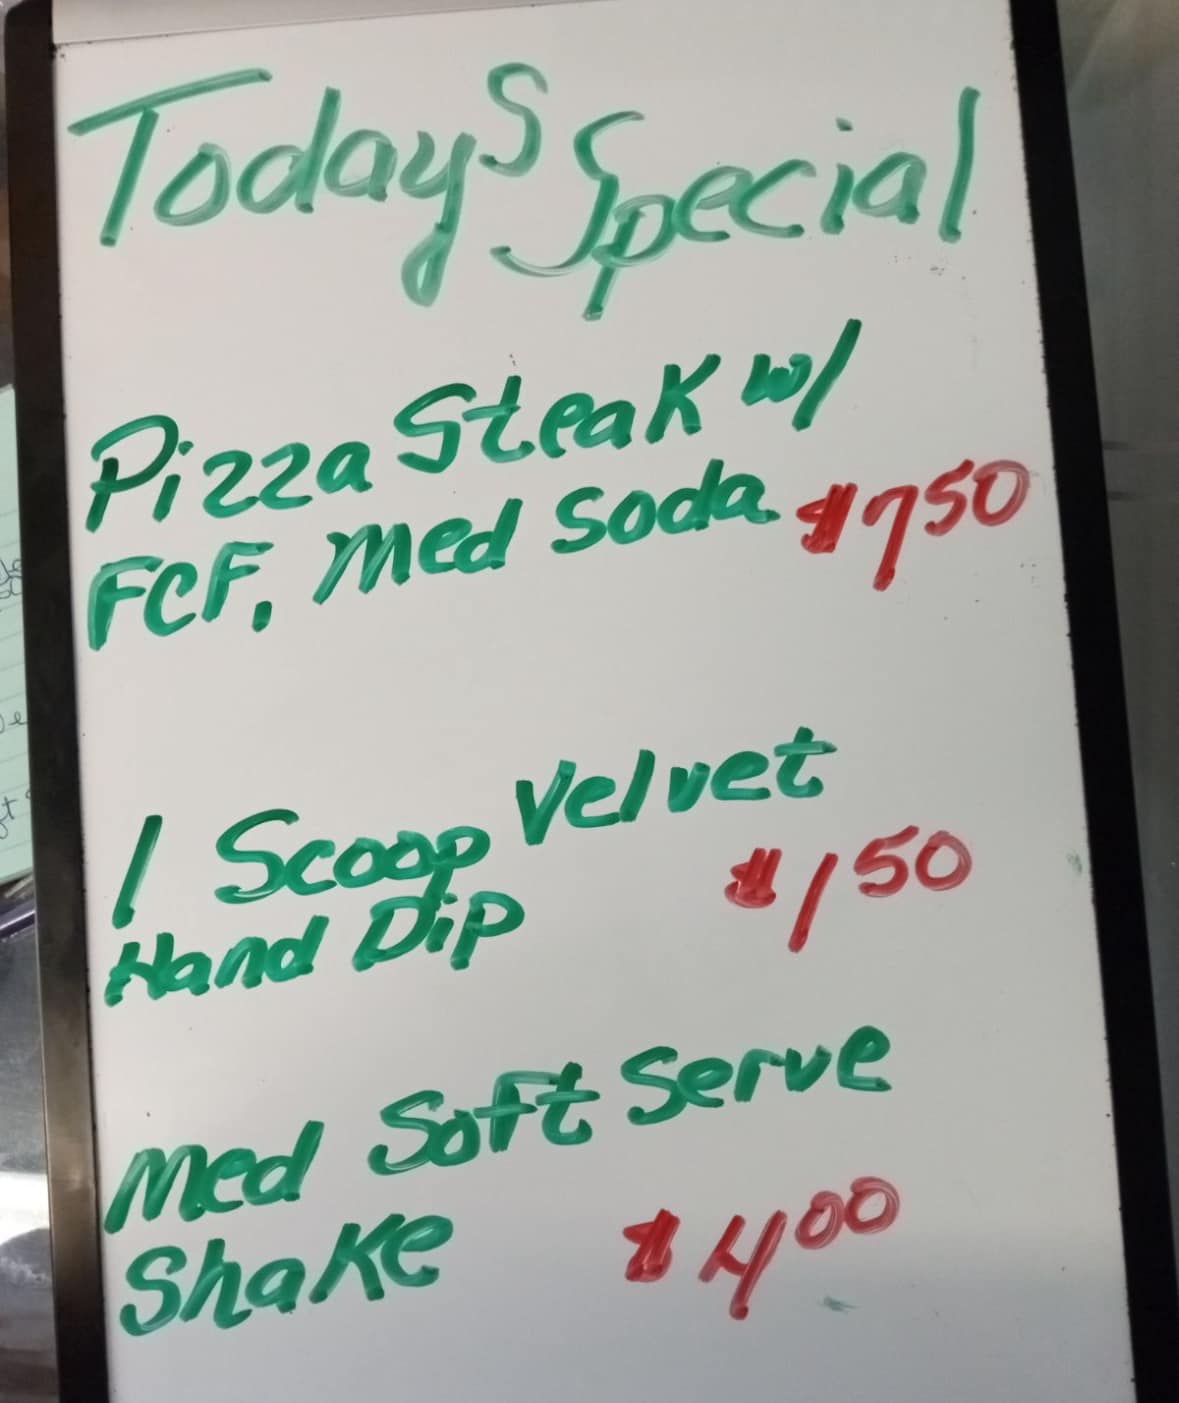 Todays Special
Pizza Steak w/
FCF, Med Soda $7.50
1 Scoop Velvet
Hand Dip $1.50
Med Soft Serve
Shake $4.00